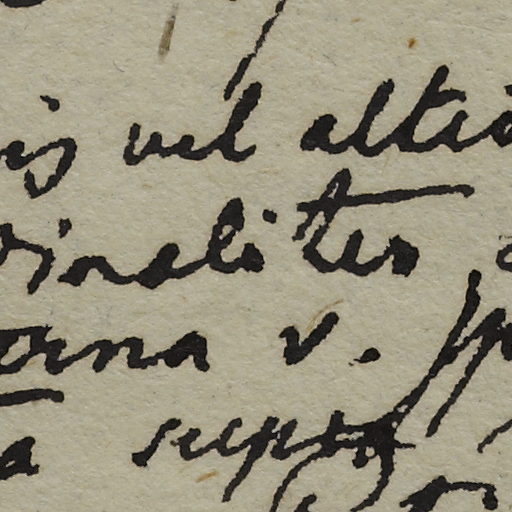 is vel altio
dinaliter
erna v. sp
a supra